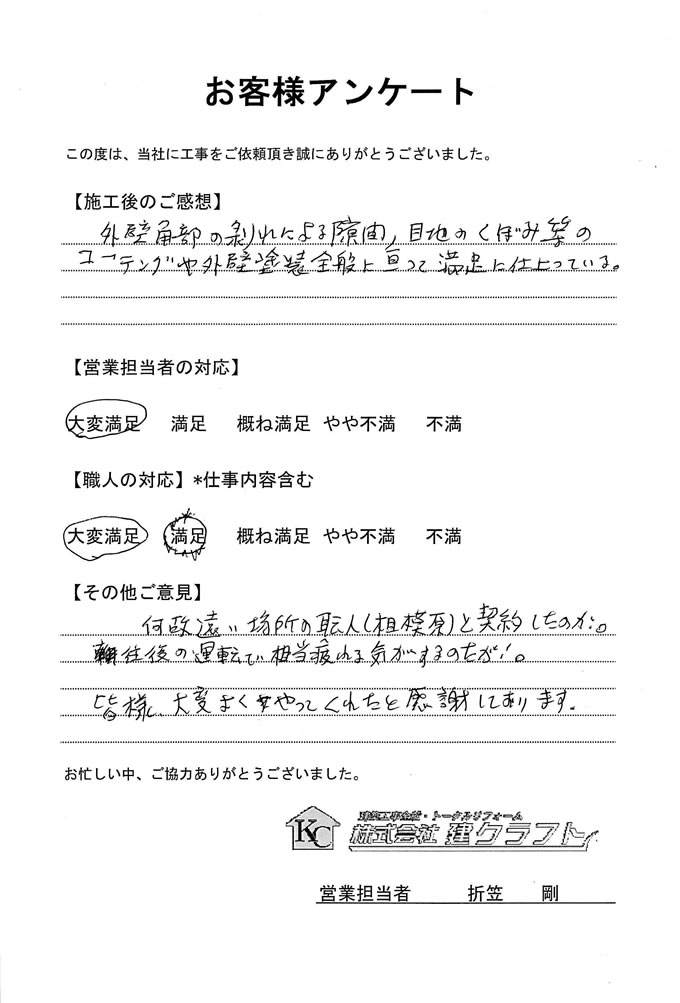 お客様アンケート
この度は、当社に工事をご依頼頂き誠にありがとうございました。
【施工後のご感想】
外壁角部の剥れによる隙間,目地のくぼみ等の
コーテングや外壁塗装全般に亘って満足に仕上っている。
【営業担当者の対応】
大変満足 満足 概ね満足 やや不満 不満
【職人の対応】*仕事内容含む
大変満足 満足 概ね満足 やや不満 不満
【その他ご意見】
何故遠い場所の職人(相模原)と契約したのか。
往復の運転で相当疲れる気がするのだが!。
皆様、大変よくやってくれたと感謝しております。
お忙しい中、ご協力ありがとうございました。
KC
建築工事全般・トータルリフォーム
株式会社 建クラフト
営業担当者 折笠 剛